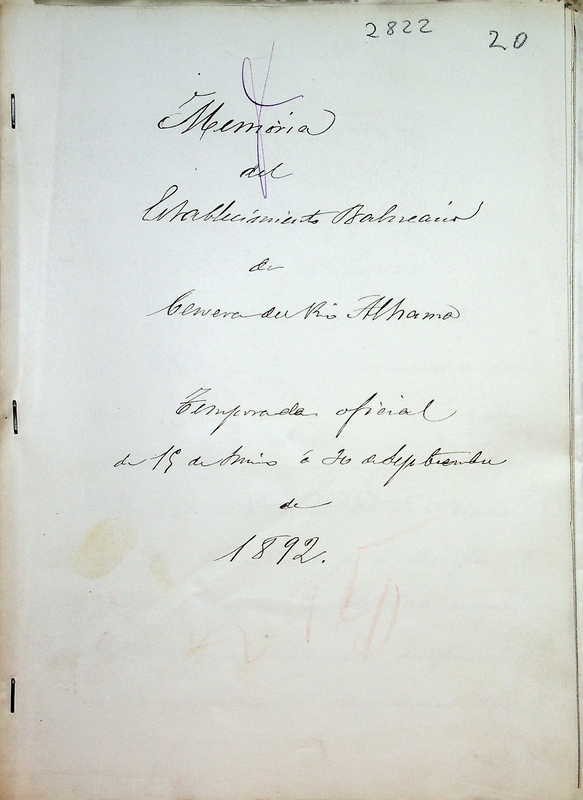 2822 20
Memoria
del
Establecimiento Balneario
de
Cervera del Rio Alhama
Temporada oficial
de 15 de Junio á 30 de Septiembre
de
1892.